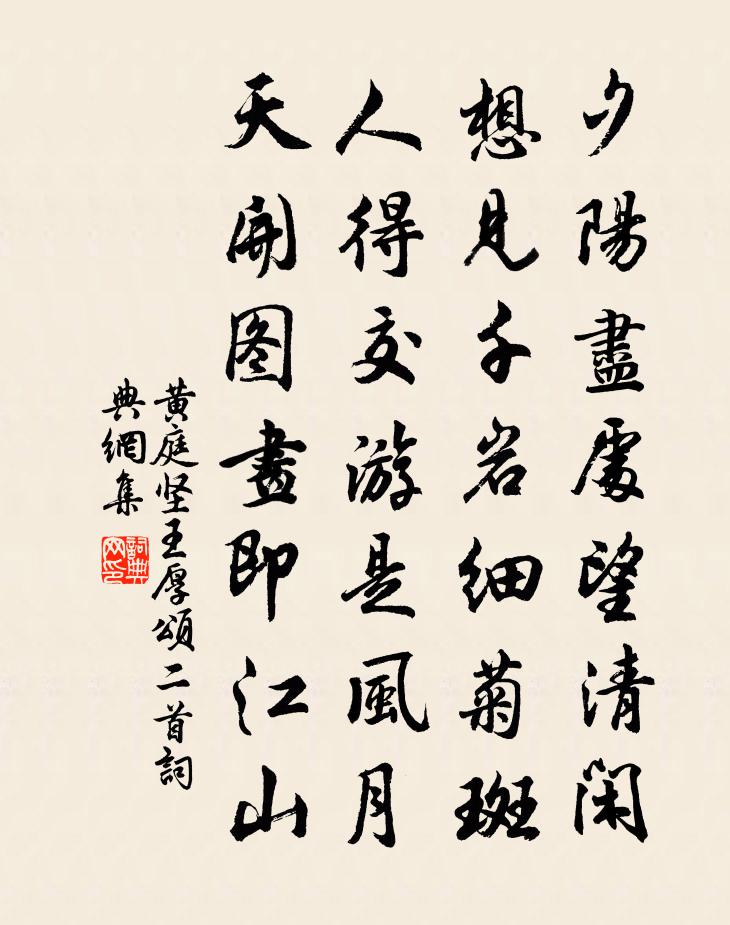 夕陽盡處望清閑
想見千岩细菊斑
人得交游是風月
天開图畫即江山
黄庭坚王厚頌二首詞
典網集
詞典网印